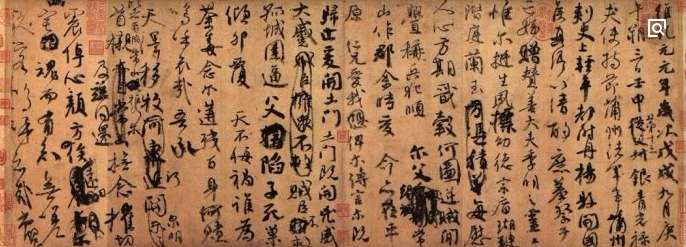 維乾元元年歲次戊戌九月庚
午朔三日壬申第十三叔銀青光祿
夫使持節蒲州諸軍事蒲州
刺史上輕車都尉丹楊縣開國
侯真卿以清酌庶羞祭于
亡姪贈贊善大夫季明之靈
惟爾挺生夙標幼德宗廟瑚璉
階庭蘭玉每慰
人心方期戩穀何圖逆賊閒
釁稱兵犯順爾父竭誠常
山作郡余時受命亦在平
原仁兄愛我俾爾傳言爾既
歸止爰開土門土門既開凶威
大蹙賊臣不救
孤城圍逼父陷子死巢
傾卵覆天不悔禍誰為
荼毒念爾遘殘百身何贖
嗚乎哀哉吾承
天澤移牧河關泉明
首櫬及茲同還撫念摧切
震悼心顏方俟遠日
幽宅魂而有知無嗟
久客嗚呼哀哉尚饗